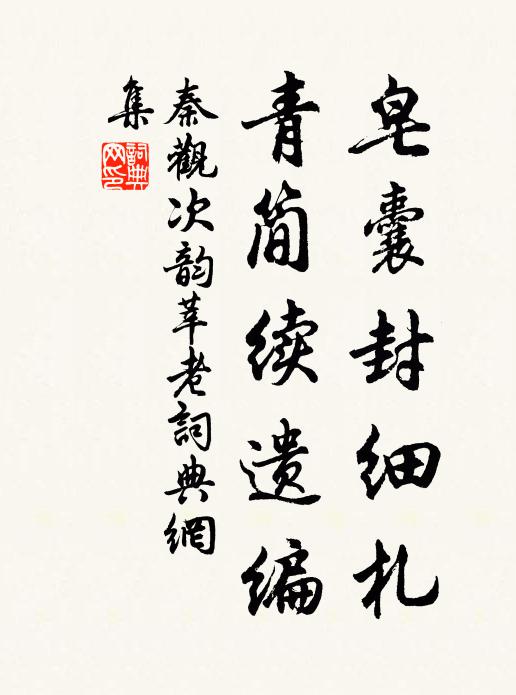 皂囊封细札
青简续遗编
秦觀次韵莘老詞典網
集
詞典网印